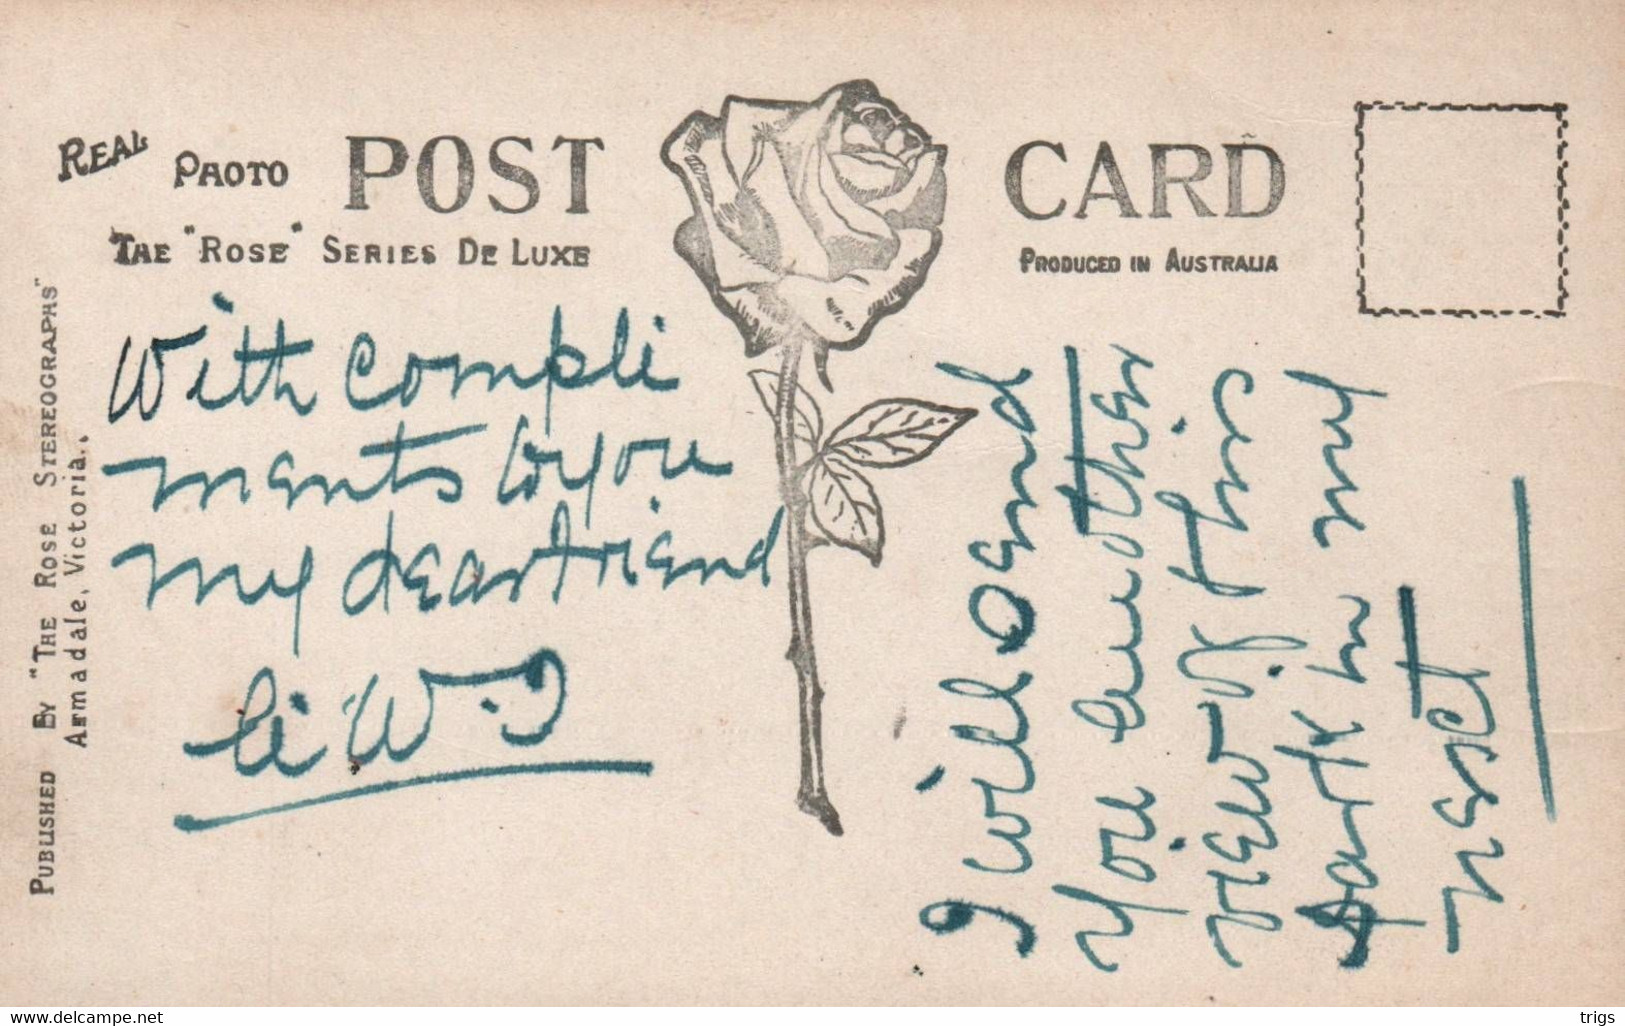 REAL PHOTO POST CARD
THE "ROSE" SERIES DE LUXE
PRODUCED IN AUSTRALIA
PUBLISHED BY "THE ROSE STEREOGRAPHS"
Armadale, Victoria.
With compli
ments to you
my dear friend
I will send
you another
view of this
park in my
next
www.delcampe.net
trigs